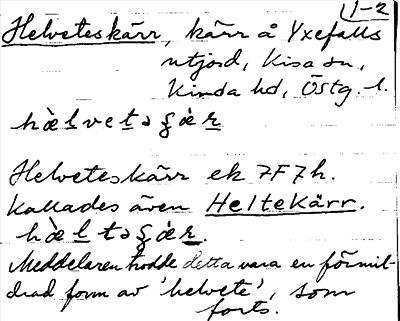 1-2
Helveteskärr, kärr å Yxefalls
utjord, Kisa sn,
Kinda hd, Östg. l.
hὰlvetəʂæ̀r
Helveteskärr ek 7F7h.
Kallades även Heltekärr.
hæ̀ltəʂæ̀r.
Meddelaren trodde detta vara en förmil-
drad form av 'helvete', som
forts.